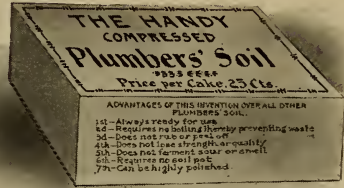 THE HANDY
COMPRESSED
Plumbers' Soil
Price per Cake, 25 Cts.
ADVANTAGES OF THIS INVENTION OVER ALL OTHER
PLUMBERS' SOIL.
1st-Always ready for use
2d-Requires no boiling thereby preventing waste
3d-Does not rub or peel off "
4th-Does not lose strength or quality
5th-Does not ferment sour or smell
6th-Requires no soil pot
7th-Can be highly polished